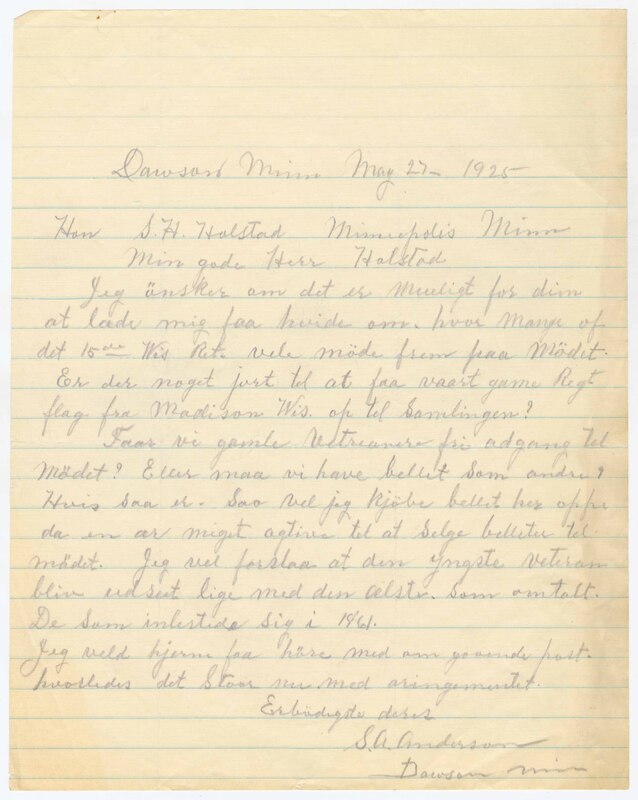 Dawson Minn May 27 - 1925
Hon S. H. Holstad Minneapolis Minn
Min gode Herr Holstad
Jeg önsker om det er meuligt for dim
at lade mig faa hvide om. hvor mange of
det 15de Wis Ret. vele möde frem paa Mödet.
Er der noget jort til at faa vaart game Regt
flag fra Madison Wis. op til Samlingen?
Faar vi gamle Vetreanere fri adgang til
Mödet? Eller maa vi have bellet som andre?
Hvis saa er - Saa vel jeg kjöbe bellet her oppe
da en ær miget agtive til at Selge belleter til
mödet. Jeg vel forslaa at den yngste veteran
bliv udseet lige med den ælste. som omtalt.
De som inlestede sig i 1861.
Jeg veld hjerne faa höre med om gaaende post.
hvorledes det Staar nu med aringementet.
Erbödigste deres
S. A. Anderson
Dawson Minn